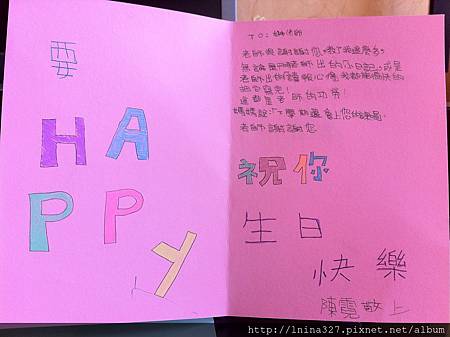 要
HA
PPY
TO: 老師
老師我謝謝您,教了我這麼多,
無論是 老師出的小日記,或是
老師出的 報心得我都能很快的
把它寫完!
這都是老師的功勞!
媽媽說:「下學期還會上您的課。
老師謝謝您
祝你
生日
快樂
陳霓敬上
http://1nina327.pixnet.net/album